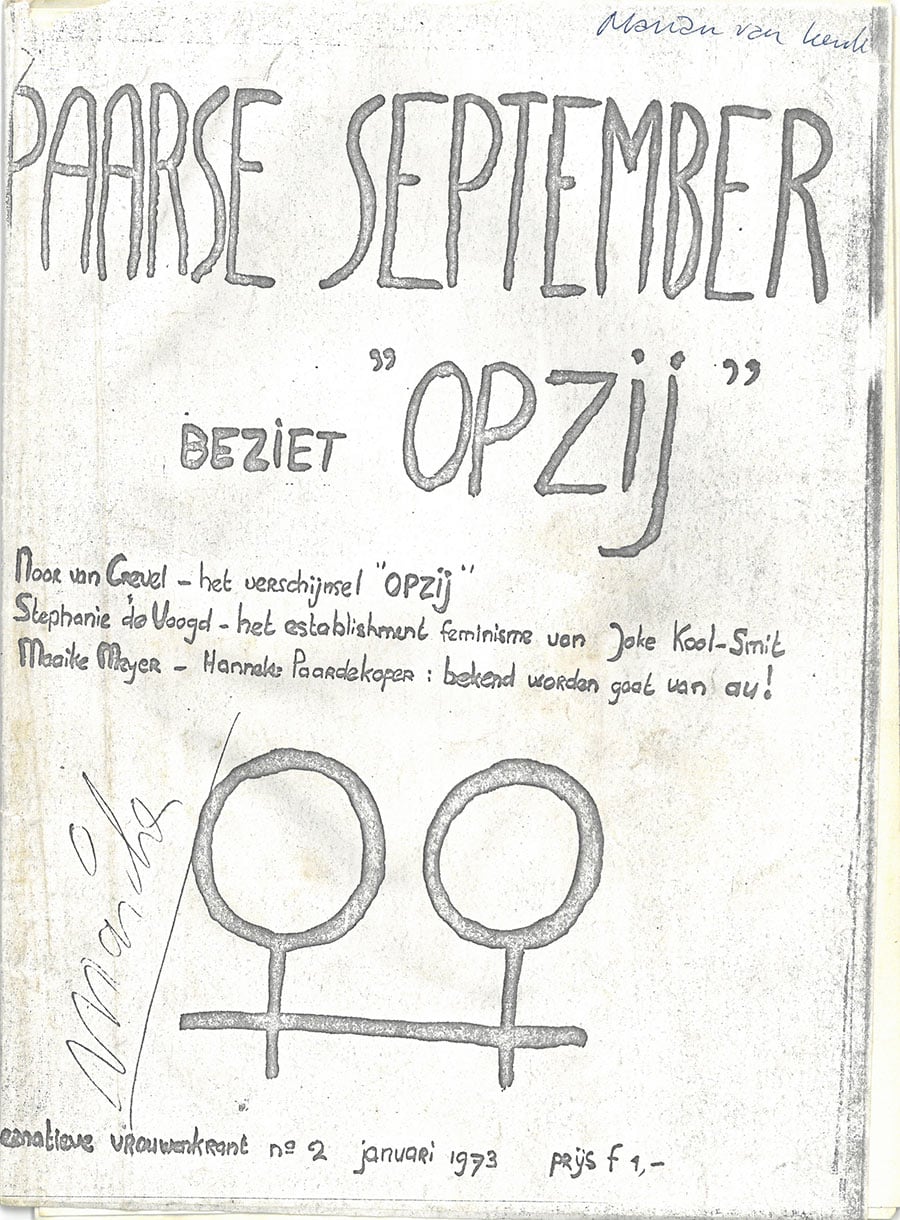 Marian van
PAARSE SEPTEMBER
BEZIET "OPZIJ"
Noor van Crevel – het verschijnsel "OPZIJ"
Stephanie de Voogd – het establishment feminisme van Joke Kool-Smit
Maaike Meyer – Hanneke Paardekoper : bekend worden gaat van au!
ernatieve vrouwenkrant no 2 januari 1973 prijs f 1,-